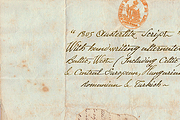 "1805 Quaterlite Script
With handwriting alternate
Baltic West (Including Celtic
& Central European, Hungarian
Romanian & Turkish.